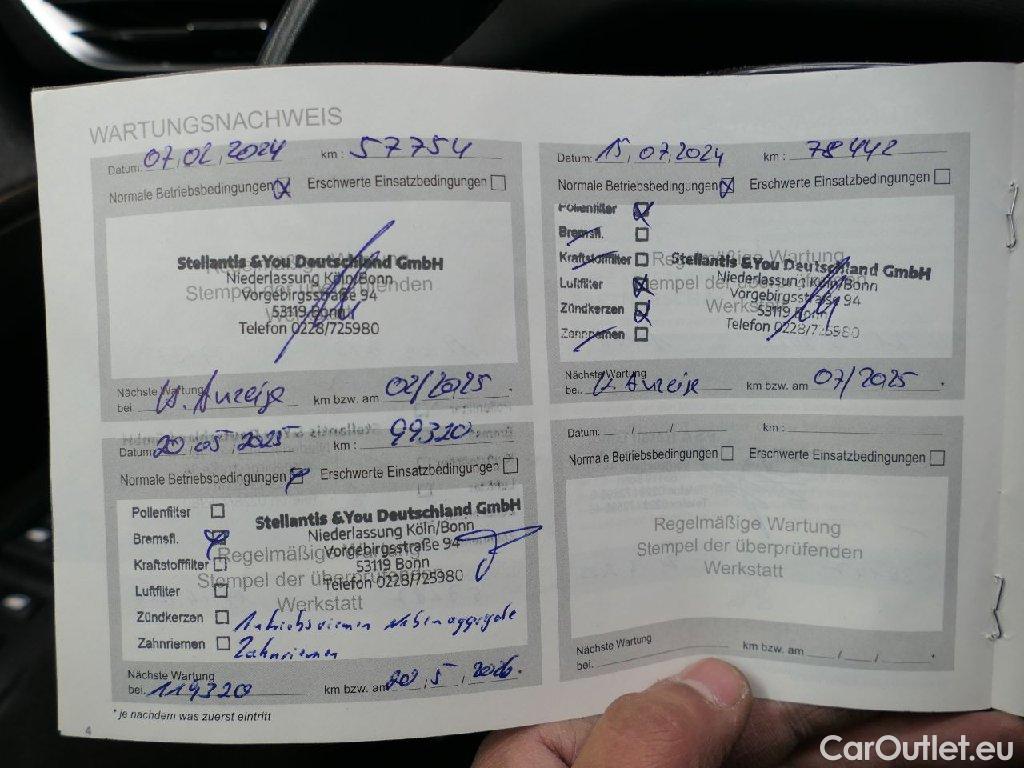 WARTUNGSNACHWEIS
Datum: 07.02.2024 km: 57754
Normale Betriebsbedingungen Erschwerte Einsatzbedingungen
Stellantis &You Deutschland GmbH
Niederlassung Köln/Bonn
Stempel der überprüfenden
Vorgebirgsstraße 94
53119 Bonn
Telefon 0228/725980
Nächste Wartung
bei. Anzeige km bzw. am 02/2025.
Datum: 15.07.2024 km: 78442
Normale Betriebsbedingungen Erschwerte Einsatzbedingungen
Pollenfilter
Bremsfl.
Kraftstofffilter
Luftfilter
Zündkerzen
Zahnriemen
Regelmäßige Wartung
Stellantis &You Deutschland GmbH
Niederlassung Köln/Bonn
Vorgebirgsstraße 94
53119 Bonn
Telefon 0228/725980
Nächste Wartung
bei.. Anzeige km bzw. am 07/2025.
Datum: 20.05.2025 km: 99320.
Normale Betriebsbedingungen Erschwerte Einsatzbedingungen
Pollenfilter
Bremsfl.
Kraftstofffilter
Luftfilter
Zündkerzen
Zahnriemen
Stellantis &You Deutschland GmbH
Niederlassung Köln/Bonn
Vorgebirgsstraße 94
53119 Bonn
Telefon 0228/725980
Regelmäßige Wartung
Stempel der überprüfenden
Werkstatt
Antriebsriemen Nebenaggregate
Zahnriemen
Nächste Wartung
bei. 119320 km bzw. am 20.5.2026.
Datum: / / km:
Normale Betriebsbedingungen Erschwerte Einsatzbedingungen
Regelmäßige Wartung
Stempel der überprüfenden
Werkstatt
Nächste Wartung
bei. km bzw. am / / .
* je nachdem was zuerst eintritt
4
CarOutlet.eu